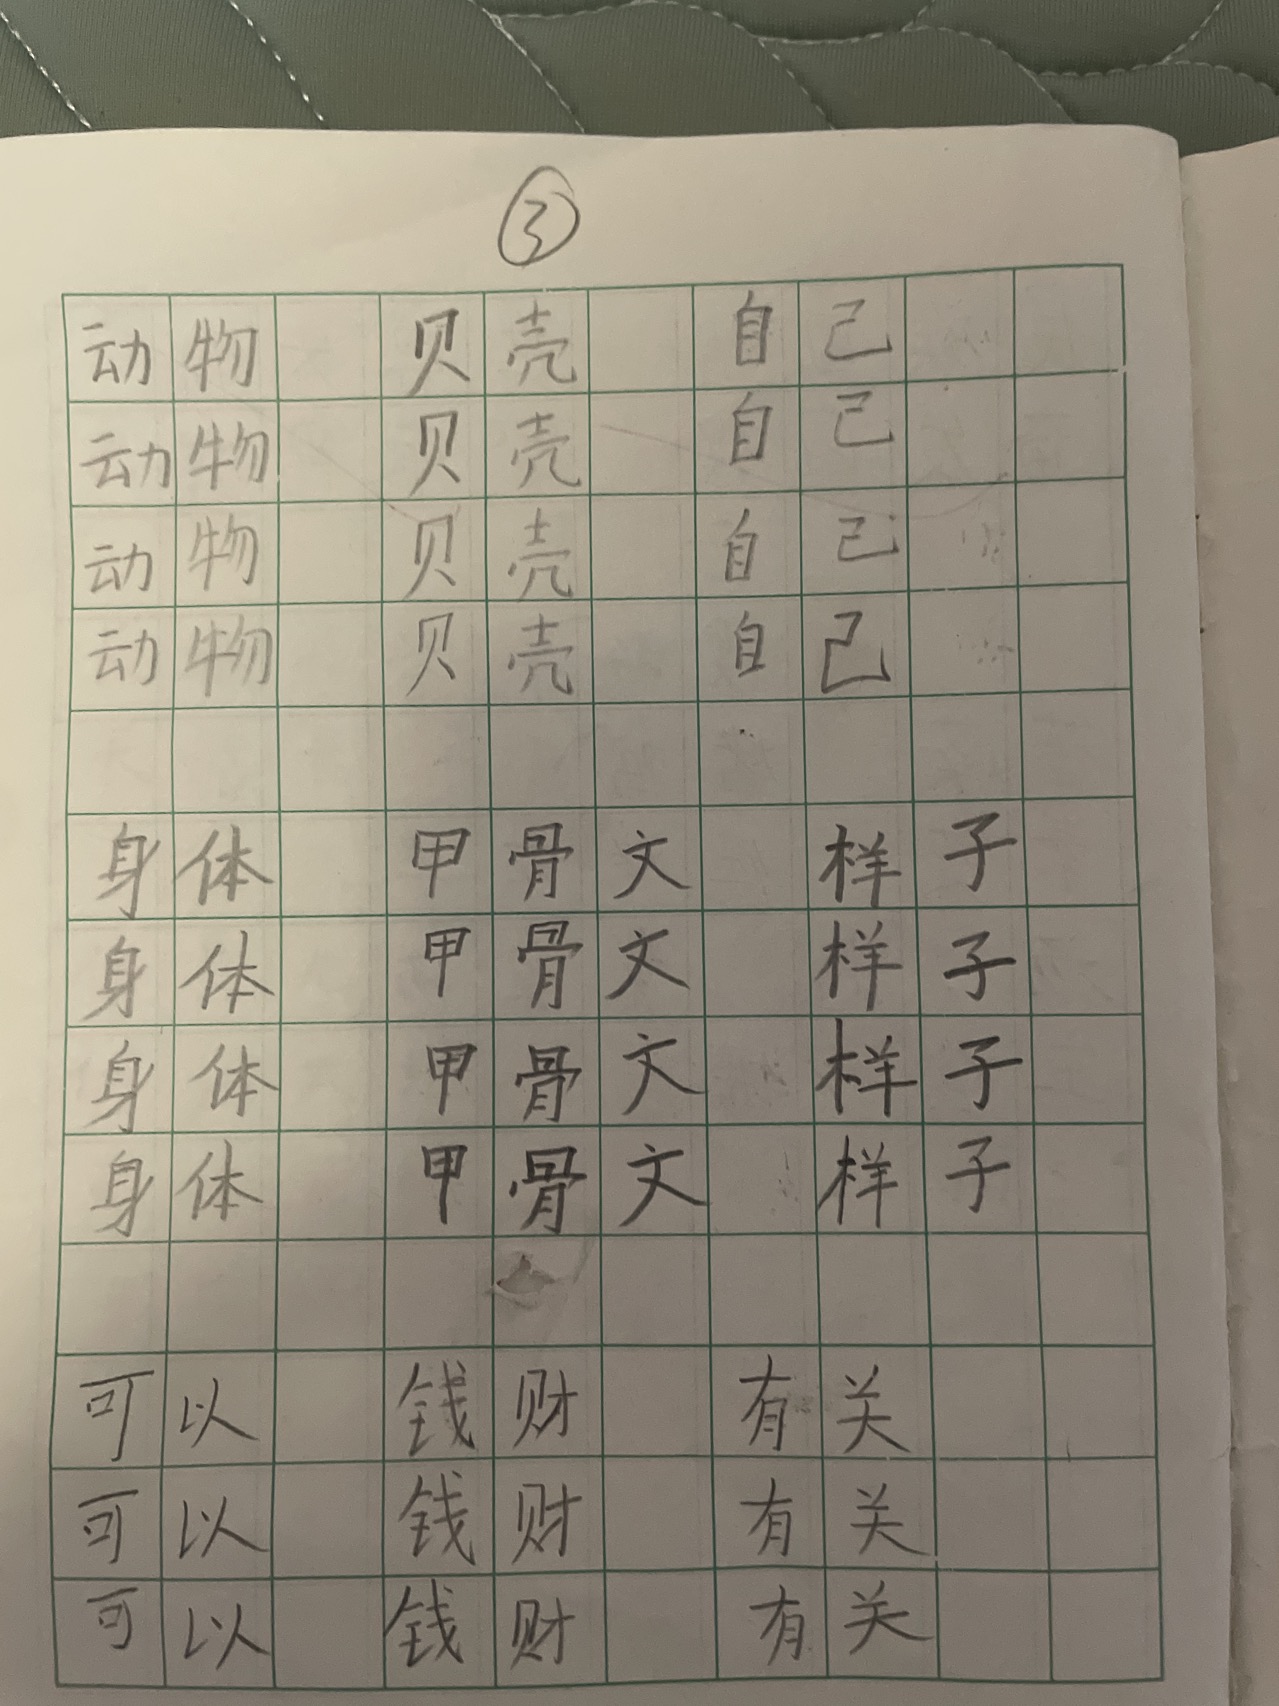 ③
动物 贝壳 自己
动物 贝壳 自己
动物 贝壳 自己
动物 贝壳 自己
身体 甲骨文 样子
身体 甲骨文 样子
身体 甲骨文 样子
身体 甲骨文 样子
可以 钱财 有关
可以 钱财 有关
可以 钱财 有关